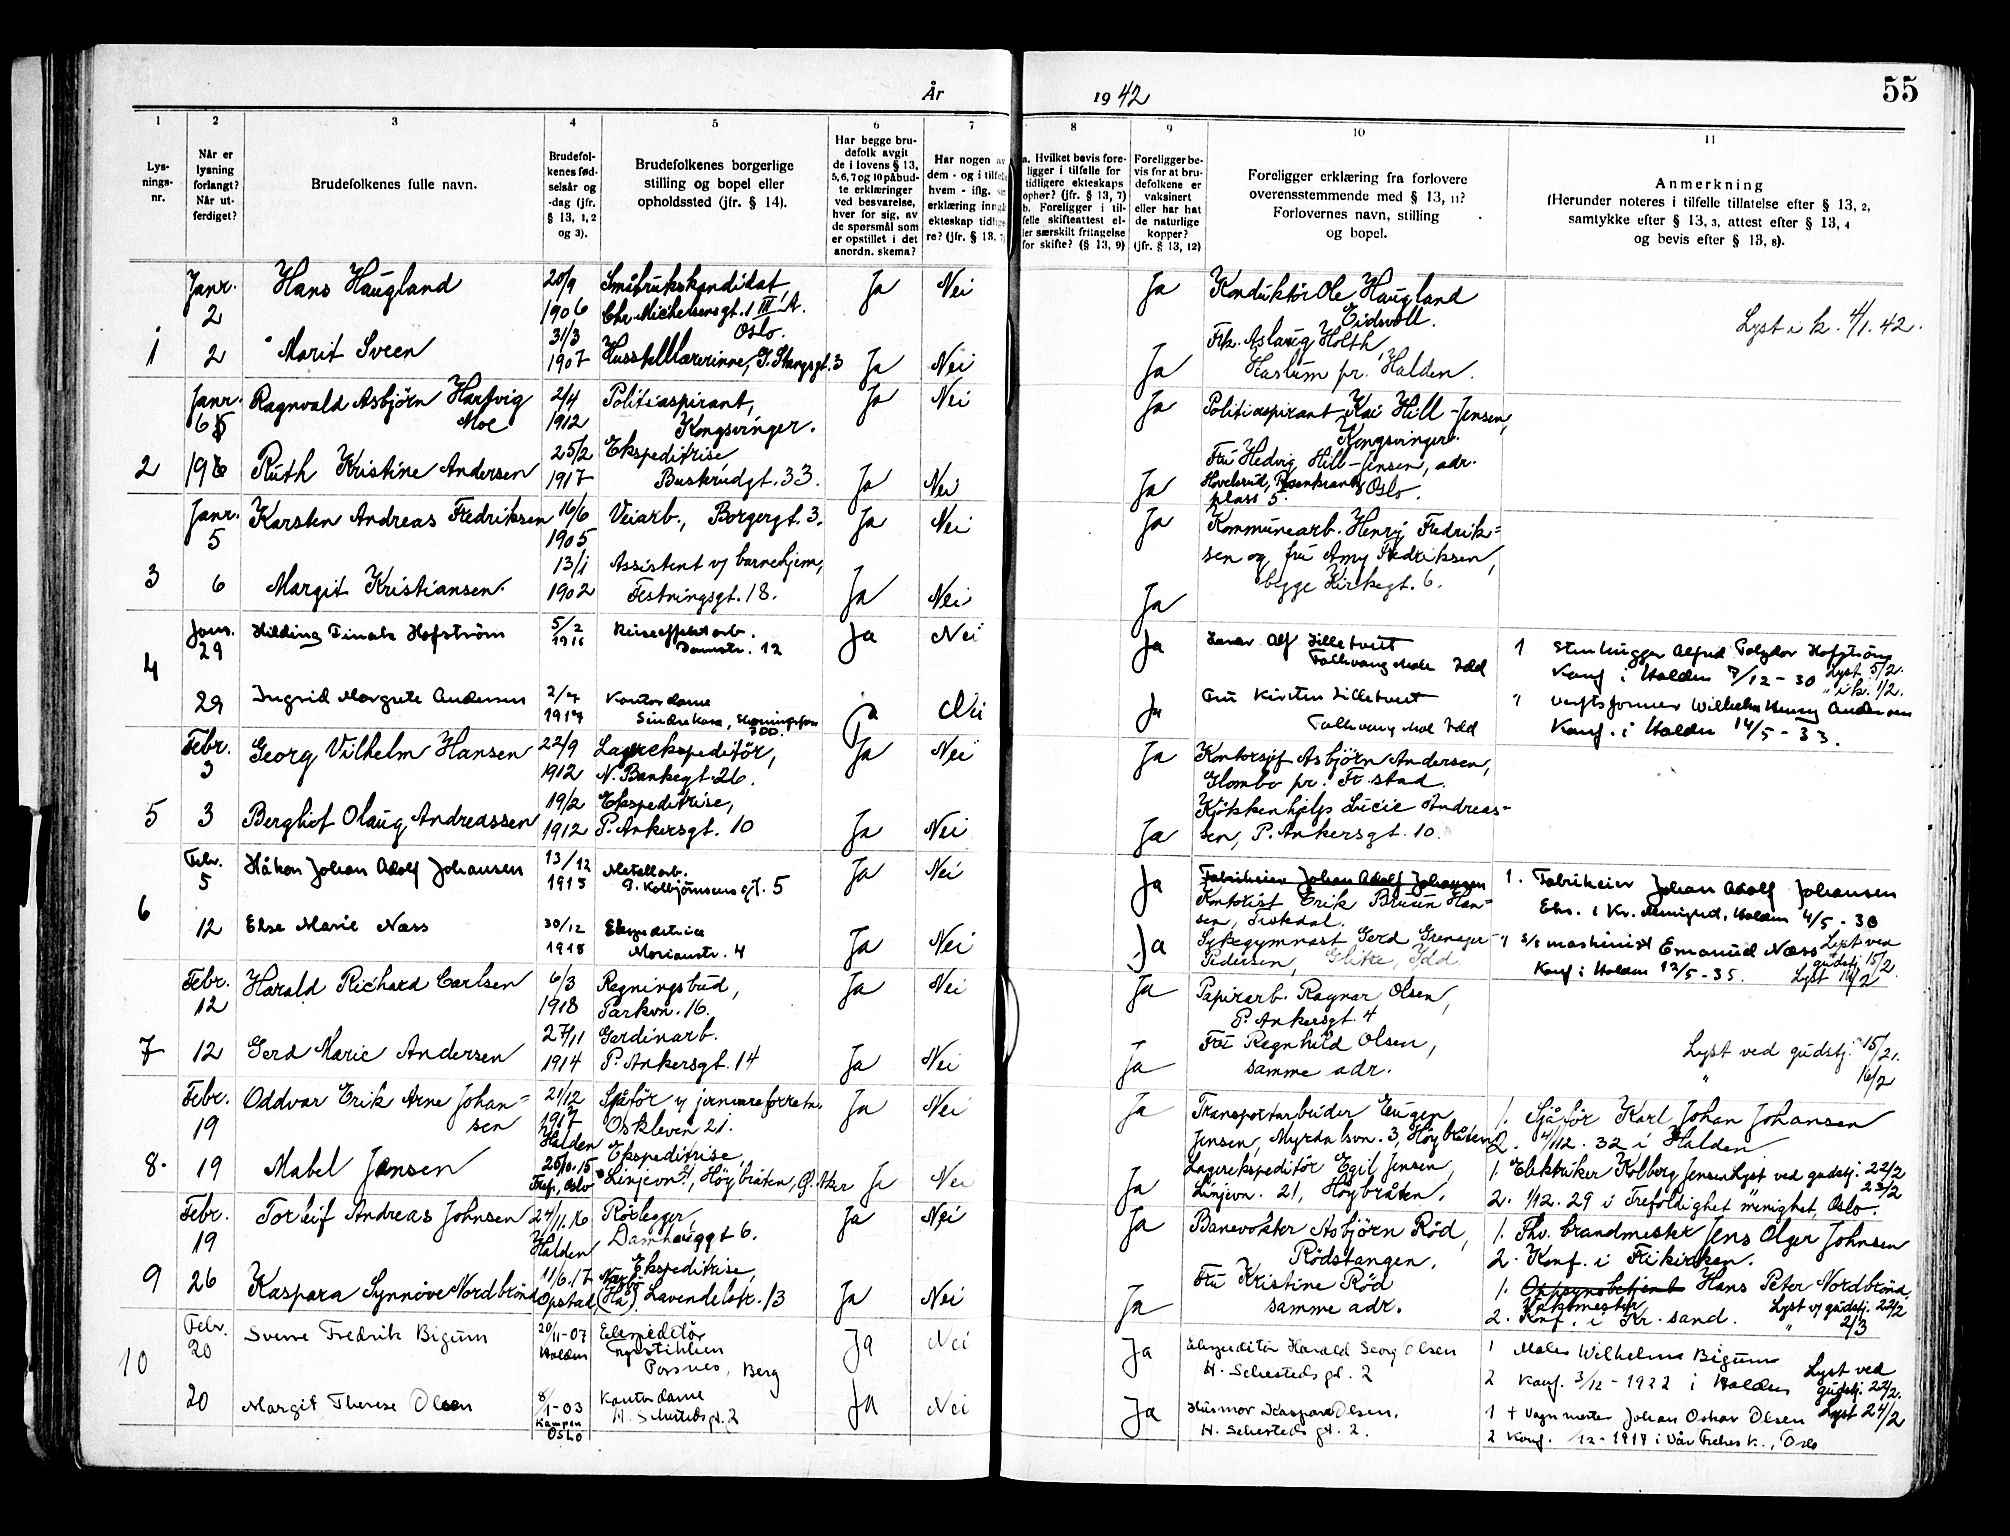 55
År 1942
1 2 3 4 5 6 7 8 9 10 11
Lys-
nings-
nr.
Når er
lysning
forlangt?
Når ut-
ferdiget?
Brudefolkenes fulle navn.
Brudefol-
kenes fød-
selsår og
-dag (jfr.
§ 13, 1, 2
og 3).
Brudefolkenes borgerlige
stilling og bopel eller
opholdssted (jfr. § 14).
Har begge bru-
defolk avgit
de i lovens § 13,
5, 6, 7 og 10 påbud-
te erklæringer
ved besvarelse,
hver for sig, av
de spørsmål som
er opstillet i det
anordn. skema?
Har nogen av
dem - og i tilfelle
hvem - iflg.
erklæring inng
ekteskap tidlige-
re? (jfr. § 13, 7
a. Hvilket bevis fore-
ligger i tilfelle for
tidligere ekteskaps
ophør? (jfr. § 13, 7)
b. Foreligger i til-
felle skifteattest el-
ler særskilt fritagelse
for skifte? (§ 13, 9)
Foreligger be-
vis for at bru-
defolkene er
vaksinert
eller har hat
de naturlige
kopper?
(jfr. § 13, 12)
Foreligger erklæring fra forlovere
overensstemmende med § 13, 11?
Forlovernes navn, stilling
og bopel.
Anmerkning
(Herunder noteres i tilfelle tillatelse efter § 13, 2,
samtykke efter § 13, 3, attest efter § 13, 4
og bevis efter § 13, 8).
1
Janr.
2
Hans Haugland
20/9
1906
Småbrukskandidat
Chr. Michelsensgt. 1 III A.
Oslo.
Ja Nei Ja
Konduktör Ole Haugland
Eidsvoll.
Lyst i k. 4/1. 42.
2
Marit Sveen
31/3
1907
Husstellærerinne, G. Stangsgt. 3
Ja Nei Ja
Frk. Aslaug Holth,
Haslum pr. Halden.
2
Janr.
6
Ragnvald Asbjörn Hartvig
Moe
2/4
1912
Politiaspirant,
Kongsvinger.
Ja Nei Ja
Politiaspirant Kai Hill-Jensen,
Kongsvinger.
Ruth Kristine Andersen
25/2
1917
Ekspeditrise
Buskrudgt. 33.
Ja Nei Ja
Fru Hedvig Hill-Jensen, adr.
Hovelsrud, Rosenkrantz
plass 5. Oslo.
3
Janr.
5
Karsten Andreas Fredriksen
16/6
1905
Veiarb., Borgergt. 3.
Ja Nei Ja
Kommunearb. Henry Fredrik=
sen og fru Amy Fredriksen,
begge Kirkegt. 6.
6
Margit Kristiansen.
13/1
1902
Assistent v/ barnehjem,
Festningsgt. 18.
Ja Nei Ja
4
Janr.
29
Hilding Hofström
5/2
1916
Reiseeffektarb.
Damstr. 12
Ja Nei Ja
Alf Lilletvedt
Idd
1 Stenhugger Alfred Hofström
Konf i Halden 7/12 - 30 Lyst 5/2.
" i k. 1/2.
29
Ingrid Margrete Andersen
2/7
1917
Kontordame
Idd.
Ja Nei Ja
Fru Kirsten Lilletvedt
Idd
" Verftsformer Wilhelm Henry Andersen
Konf. i Halden 14/5 - 33.
5
Febr.
3
Georg Vilhelm Hansen
22/9
1912
Lagerekspeditör,
N. Bankegt. 26.
Ja Nei Ja
Kontorsjef Asbjörn Andersen,
Glombo pr. Fr.stad.
3
Berghof Olaug Andreassen
19/2
1912
Ekspeditrise,
P. Ankersgt. 10
Ja Nei Ja
Kjökkenhjelp Lucie Andreas-
sen, P. Ankersgt. 10.
6
Febr.
5
Håkon Johan Adolf Johansen
13/12
1915
Metallarb.
P. Kolbjörnsens gt. 5
Ja Nei Ja
Fabrikeier Johan Adolf Johansen
Kontorist Erik Bruun Han-
sen, Tistedal.
1. Fabrikeier Johan Adolf Johansen
Eks. i Kr. Menighed, Halden 4/5 - 30
12
Else Marie Næss
30/12
1918
Ekspeditrice
Marianstr. 4
Ja Nei Ja
Sykegymnast Gerd Grenager-
Pedersen, Glitre, Idd.
" s/s maskinist Emanuel Næss Lyst ved
gudstj. 15/2.
Konf i Halden 12/5 - 35. Lyst 16/2
7
Febr.
12
Harald Richard Carlsen
6/3
1918
Regningsbud,
Parkvn. 16.
Ja Nei Ja
Papirarb. Ragnar Olsen,
P. Ankersgt. 4
12
Gerd Marie Andersen
27/11
1914
Gardinarb.
P. Ankersgt. 14
Ja Nei Ja
Fru Regnhild Olsen,
samme adr.
Lyst ved gudstj. 15/2.
" 16/2
8.
Febr.
19
Oddvar Erik Arne Johan=
sen
21/12
1917
Halden
Sjåför v/ jernvareforretn.
Oskleven 21.
Ja Nei Ja
Transportarbeider Eugen
Jensen, Myrdalsvn. 3, Höybråten
1. Sjåför Karl Johan Johansen
2. 4/12. 32 i Halden
19
Mabel Jensen
25/10.15
Tref., Oslo
Ekspeditrise,
Linjevn. 21, Höybråten, Ö. Aker
Ja Nei Ja
Lagerekspeditör Egil Jensen,
Linjevn. 21, Höybråten.
1. Elektriker Kolberg Jensen Lyst ved gudstj. 22/2
" 23/2
2. 1/12. 29 i Trefoldighet menighet, Oslo.
9
Febr.
19
Torleif Andreas Johnsen
24/11.16
Halden
Rörlegger,
Damhauggt 6.
Ja Nei Ja
Banevokter Asbjörn Röd,
Rödstangen.
1. Fhv. brandmester Jens Olger Johnsen
2. Konf. i Frikirken.
26
Kaspara Synnöve Nordbrönd
11/6.17
Opstad,
Nærbö
(Hå)
Ekspeditrise,
Lavendelstr. 13
Ja Nei Ja
Fru Kristine Röd
samme adr.
1. Oppsynsbetjent Hans Peter Nordbrönd,
Vaktmester
2. Konf. i Kr.sand. Lyst v/ gudstj. 22/2
" 2/3
10
Febr.
20
Sverre Fredrik Bigum
20/11-07
Halden
Ekspeditör
Porsnes, Berg
Ja Nei Ja
Ekspeditör Harald Georg Olsen
H. Sehesteds gt. 2
1 Maler Wilhelm Bigum
2 Konf. 3/12 - 1922 i Halden Lyst ved
gudstj. 22/2.
20
Margit Therese Olsen
8/1-03
Kampen
Oslo
Kontordame
H. Sehesteds gt. 2
Ja Nei Ja
Husmor Kaspara Olsen,
H. Sehesteds gt. 2.
1 + Vognmester Johan Oskar Olsen Lyst 24/2
2 Konf. /12 - 1917 i Vår Frelsers K., Oslo